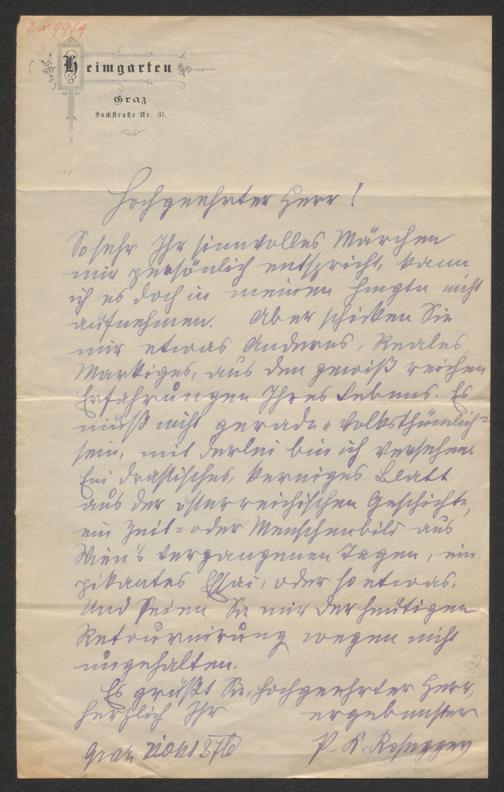 Heimgarten
Graz
Sackstraße Nr. 31.
Hochgeehrter Herr!
So sehr Ihr sinnvolles Märchen
mir persönlich entspricht, kann
ich es doch in meinen Hmgtn nicht
aufnehmen. Aber schicken Sie
mir etwas Anderes, Reales
Markiges, aus dem gewiß reichen
Erfahrungen Ihres Lebens. Es
muß nicht gerade „volksthümlich"
sein, mit derlei bin ich versehen.
Ein drastisches, kerniges Blatt
aus der österreichischen Geschichte,
ein Zeit= oder Menschenbild aus
Wien's vergangenen Tagen, ein
pikantes Essai, oder so etwas.
Und seien Sie mir der heutigen
Retournirung wegen nicht
ungehalten.
Es grüßt Sie, hochgeehrter Herr,
herzlich Ihr ergebenster
Graz 876 P. K. Rosegger